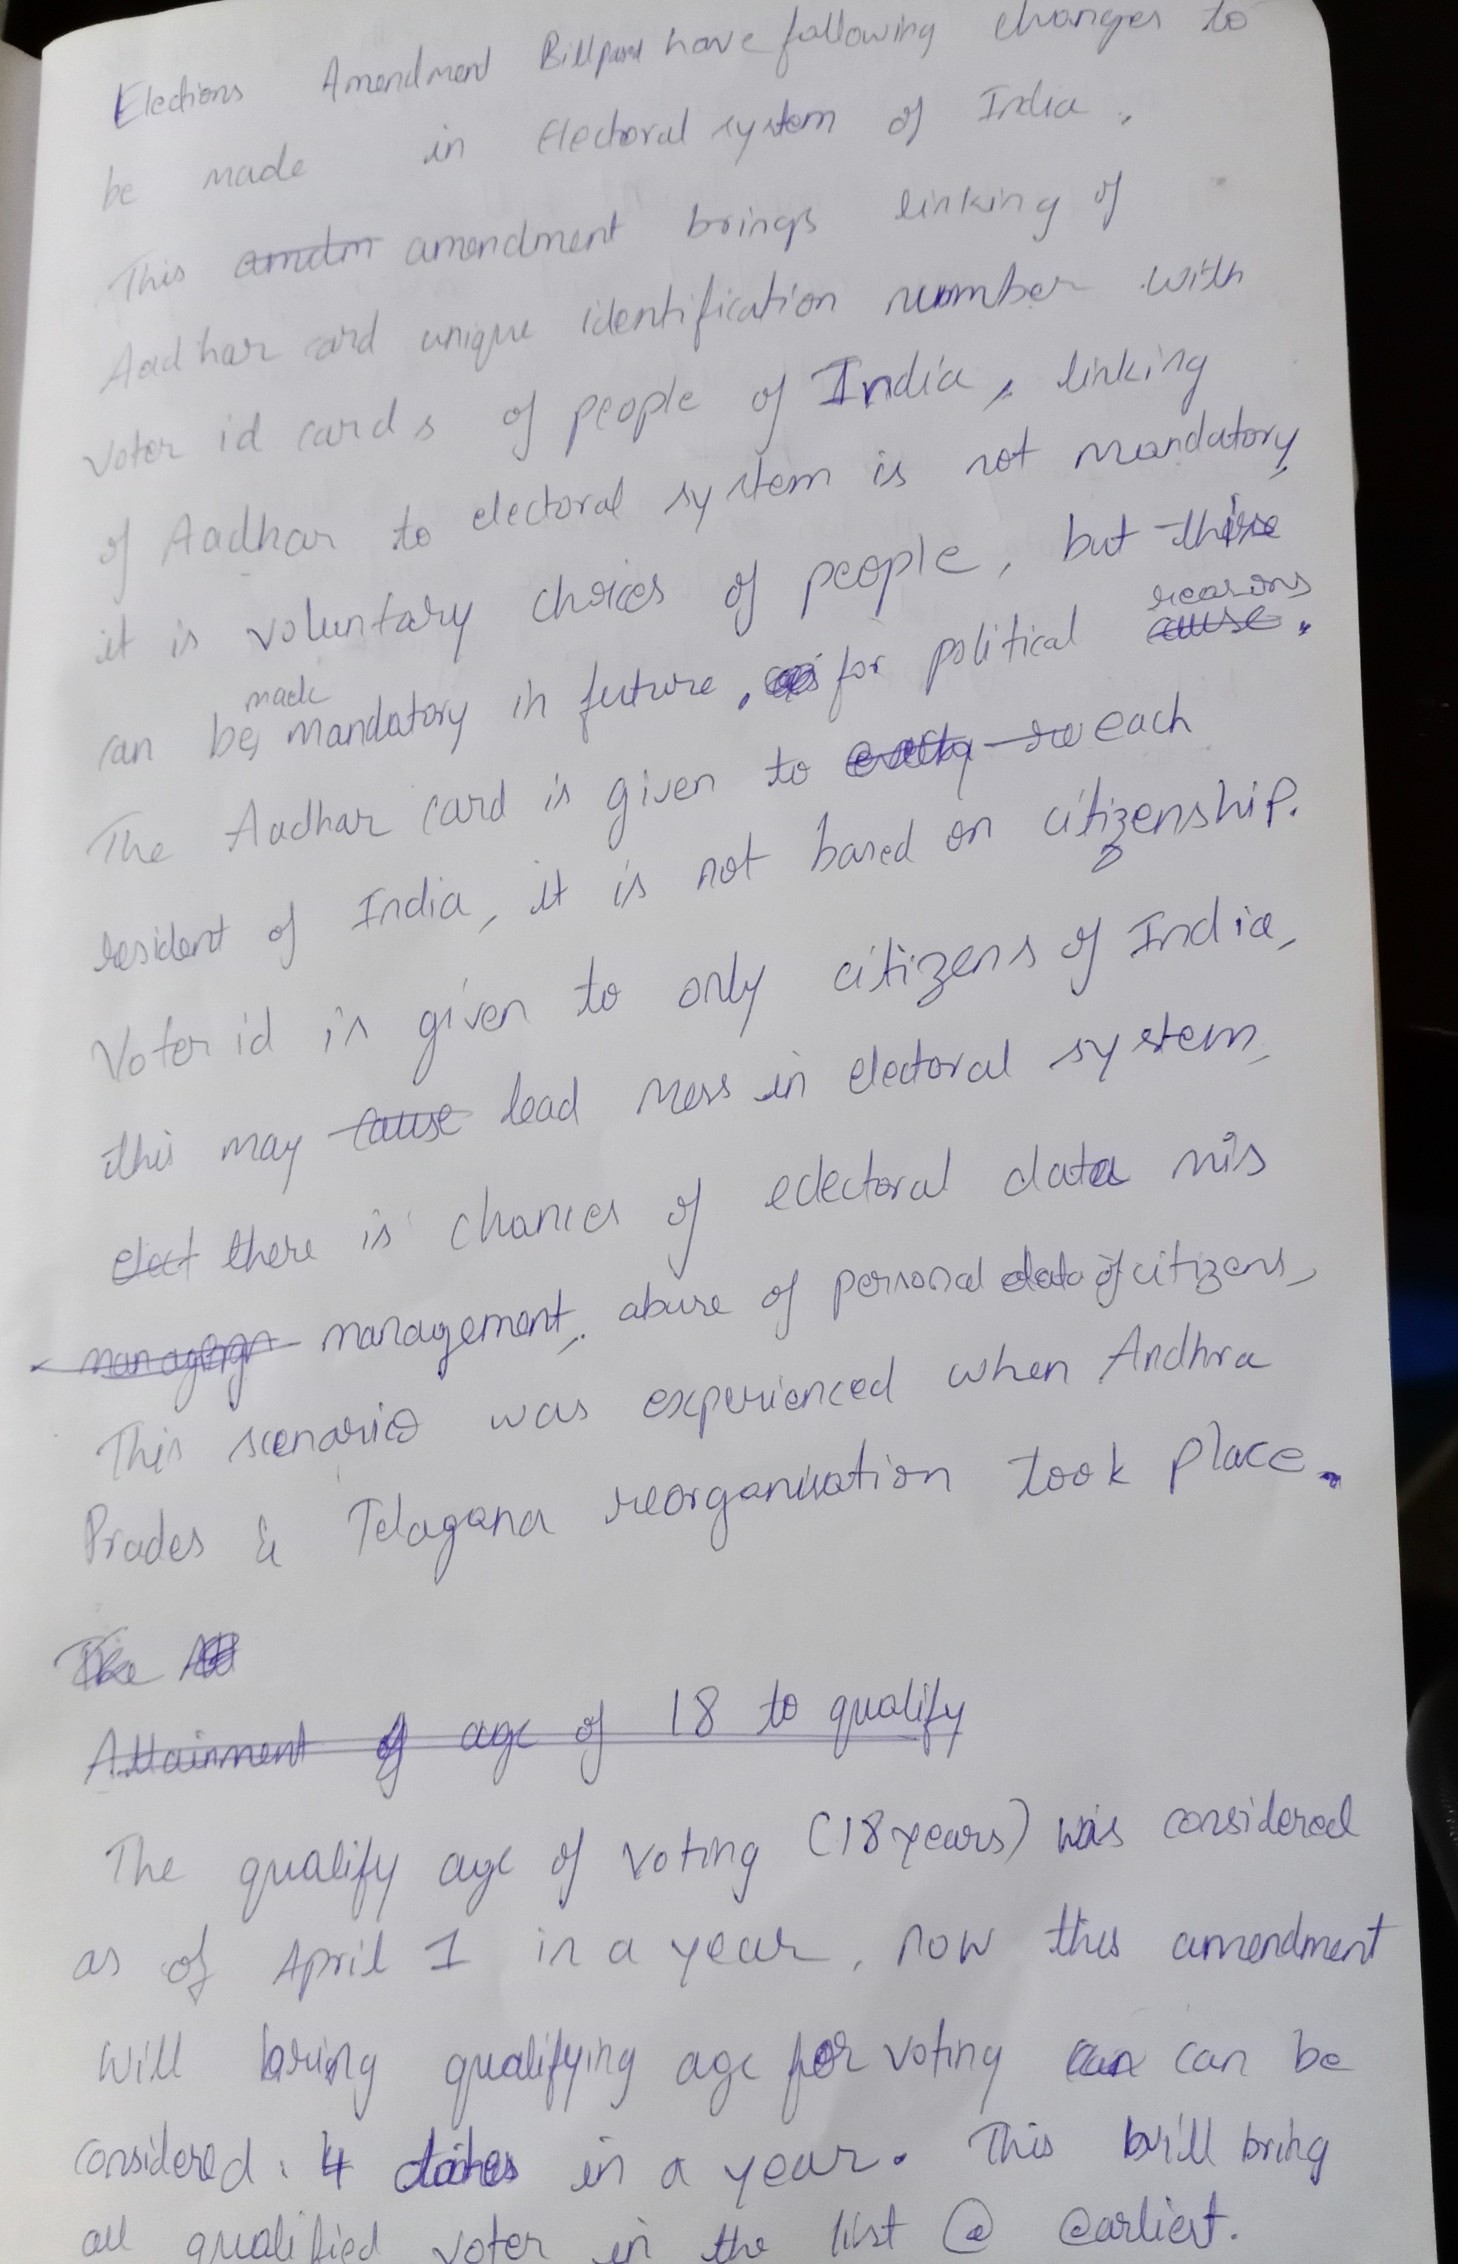 Elections Amendment Bill have following changes to
be made in Electoral system of India.
This amendment brings linking of
Aadhar card unique identification number with
voter id cards of people of India, linking
of Aadhar to electoral system is not mandatory,
it is voluntary choices of people, but this
can be made mandatory in future, for political reasons.
The Aadhar card is given to each
resident of India, it is not based on citizenship.
Voter id is given to only citizens of India,
this may lead mess in electoral system,
there is chances of edectoral data mis
management, abuse of personal data of citizens,
This scenario was experienced when Andhra
Prades & Telagana reorganisation took place.
The
Attainment of age of 18 to qualify
The qualify age of voting (18 years) was considered
as of April 1 in a year, now this amendment
will bring qualifying age for voting can be
considered 4 dates in a year. This will bring
all qualified voter in the list @ earliest.